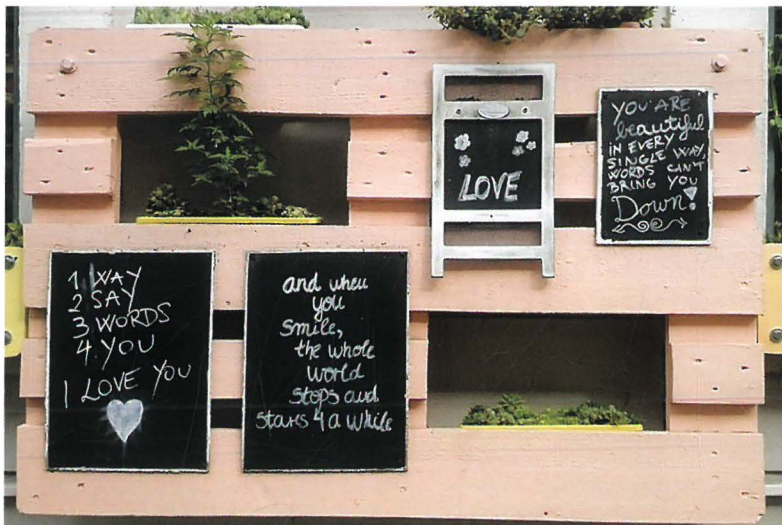 LOVE
YOU ARE
beautiful
IN EVERY
SINGLE WAY,
WORDS CAN'T
BRING YOU
Down!
1 WAY
2 SAY
3 WORDS
4 YOU
I LOVE YOU
and when
you
smile,
the whole
world
stops and
stares 4 a while